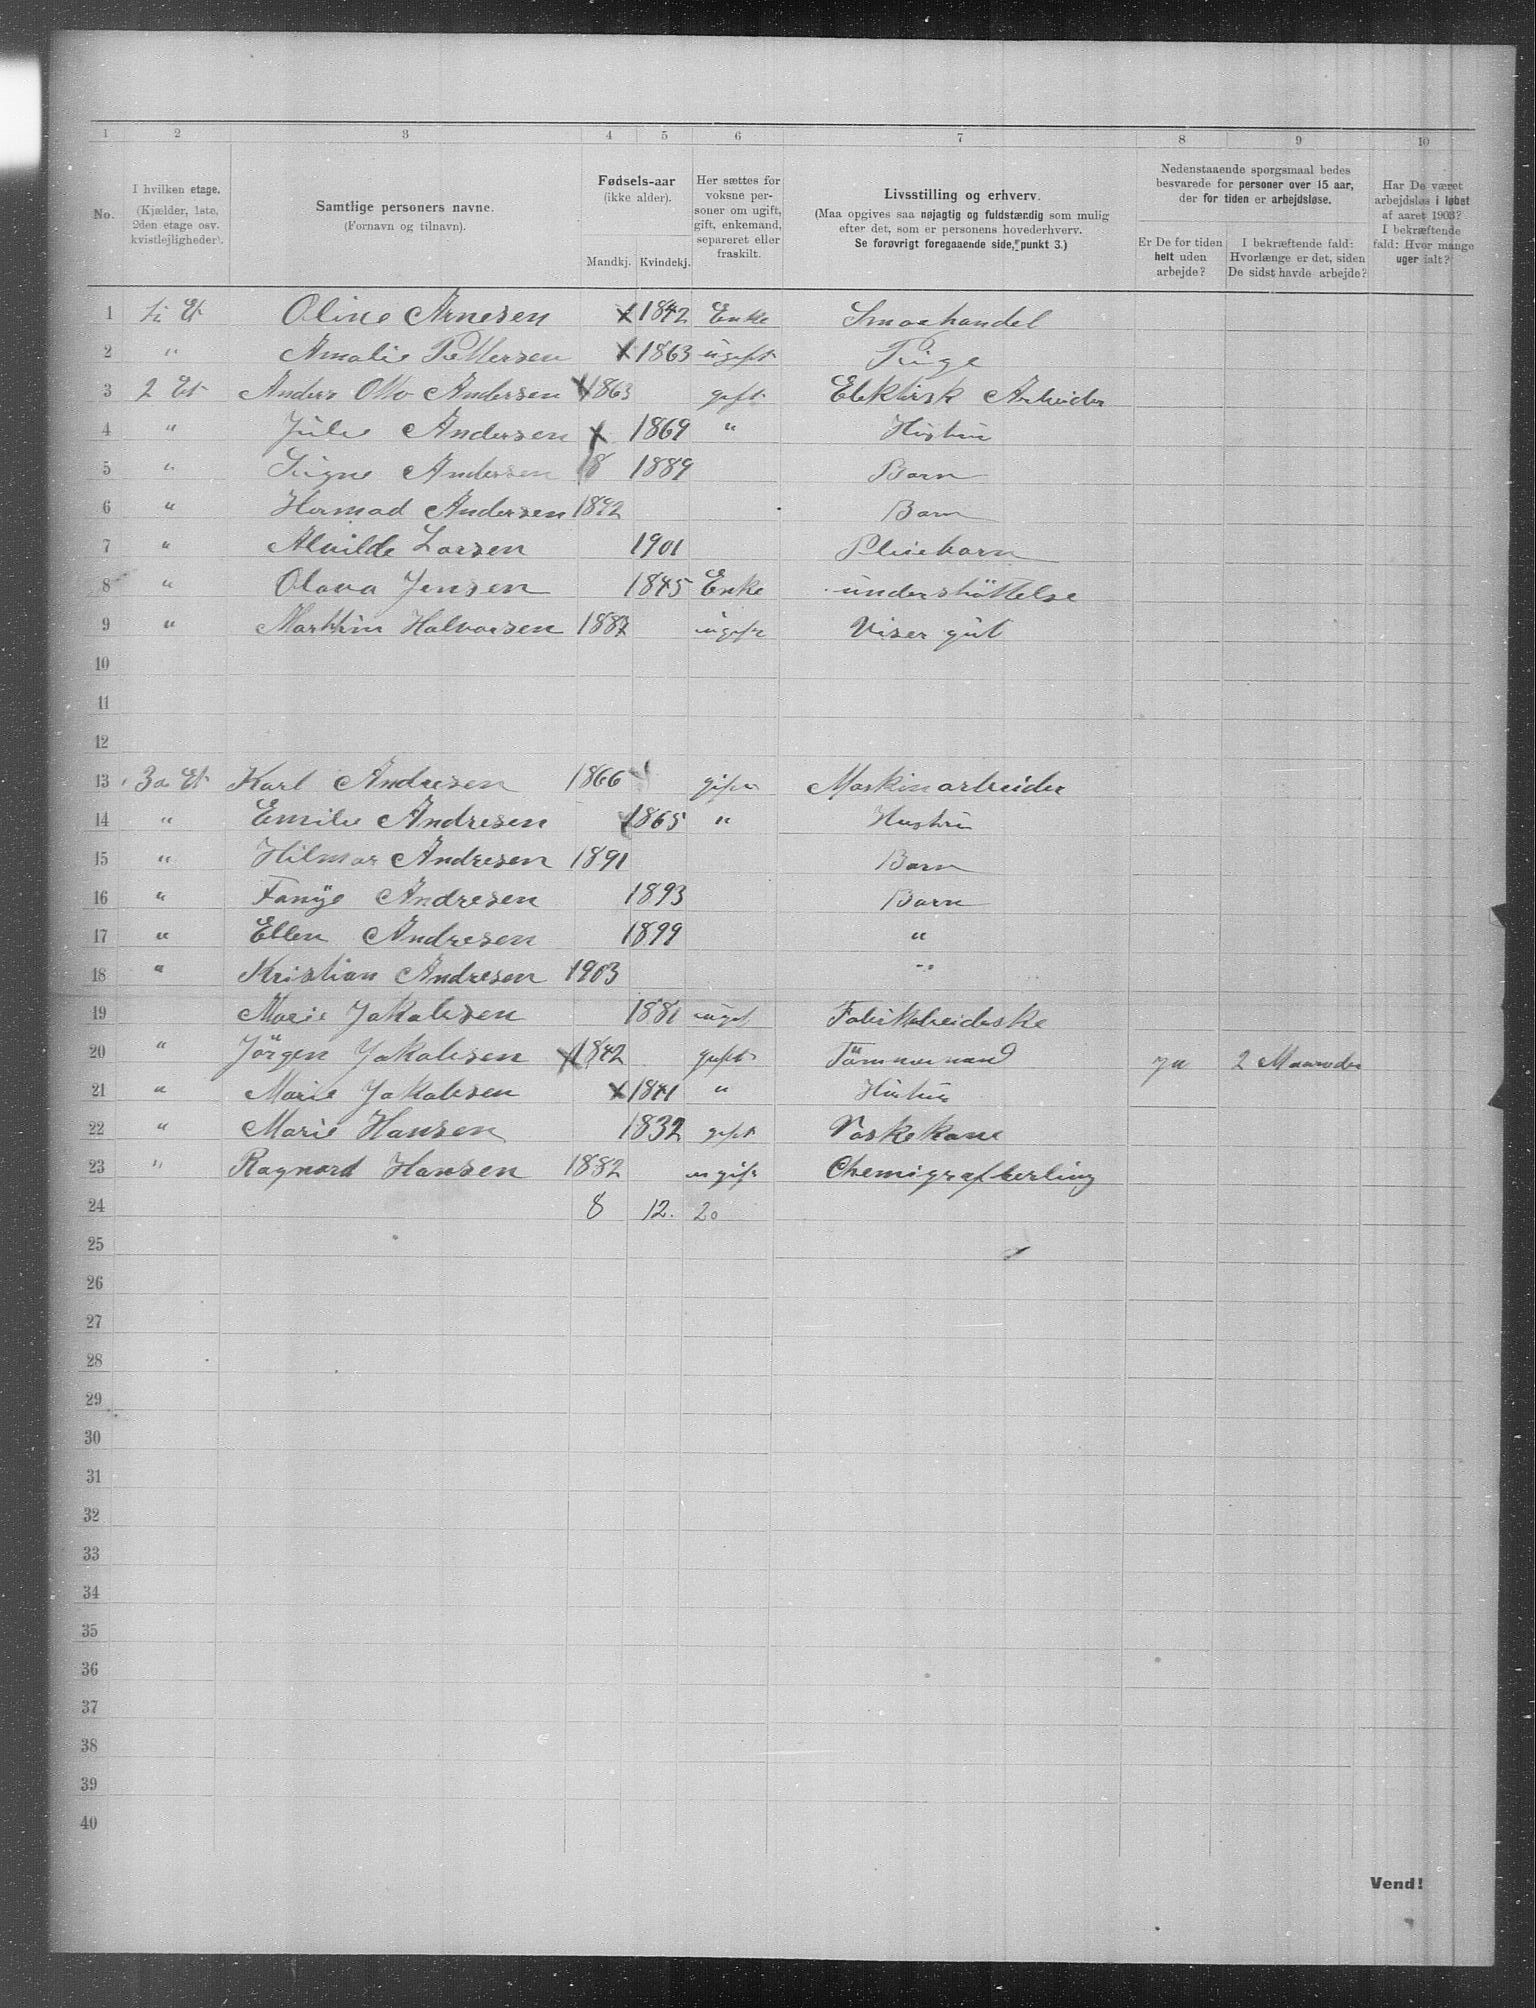 1 2 3 4 5 6 7 8 9 10
No. I hvilken etage. (Kjælder, 1ste, 2den etage osv. kvistlejligheder). Samtlige personers navne. (Fornavn og tilnavn). Fødsels-aar (ikke alder). Mandkj. Kvindekj. Her sættes for voksne personer om ugift, gift, enkemand, separeret eller fraskilt. Livsstilling og erhverv. (Maa opgives saa nøjagtig og fuldstændig som mulig efter det, som er personens hovederhverv. Se forøvrigt foregaaende side, punkt 3.) Nedenstaaende spørgsmaal bedes besvarede for personer over 15 aar, der for tiden er arbejdsløse. Er De for tiden helt uden arbejde? I bekræftende fald: Hvorlænge er det, siden De sidst havde arbejde? Har De været arbejdsløs i løbet af aaret 1903? I bekræftende fald: Hvor mange uger ialt?
1 Et Oline Arnesen x 1842 Enke Smaahandel
2 " Amalie Pettersen x 1863 ugift Pige
3 2 Et Anders Otto Andersen x 1863 gift Elektrisk Arbeider
4 " Julie Andersen x 1869 " Hustru
5 " Signe Andersen 1889 Barn
6 " Hermod Andersen 1892 Barn
7 " Alvilde Larsen 1901 Pleiebarn
8 " Olava Jensen 1845 Enke understöttelse
9 " Marthin Halvorsen 1887 ugift Viser gut
10
11
12
13 3a Et Karl Andresen 1866 gift Maskinarbeider
14 " Emilie Andresen 1865 " Hustru
15 " Hilmar Andresen 1891 Barn
16 " Fanÿe Andresen 1893 Barn
17 " Ellen Andresen 1899 "
18 " Kristian Andresen 1903 "
19 Marie Jakobsen 1881 ugift Fabrikarbeiderske
20 " Jörgen Jakobsen x 1842 gift Tömmermand ja 2 Maaneder
21 " Marie Jakobsen x 1841 " Hustru
22 " Marie Hansen 1832 gift Vaskekone
23 " Ragnard Hansen 1882 ugift Chemigraflærling
24 8 12. 20
25
26
27
28
29
30
31
32
33
34
35
36
37
38
39
40
Vend!